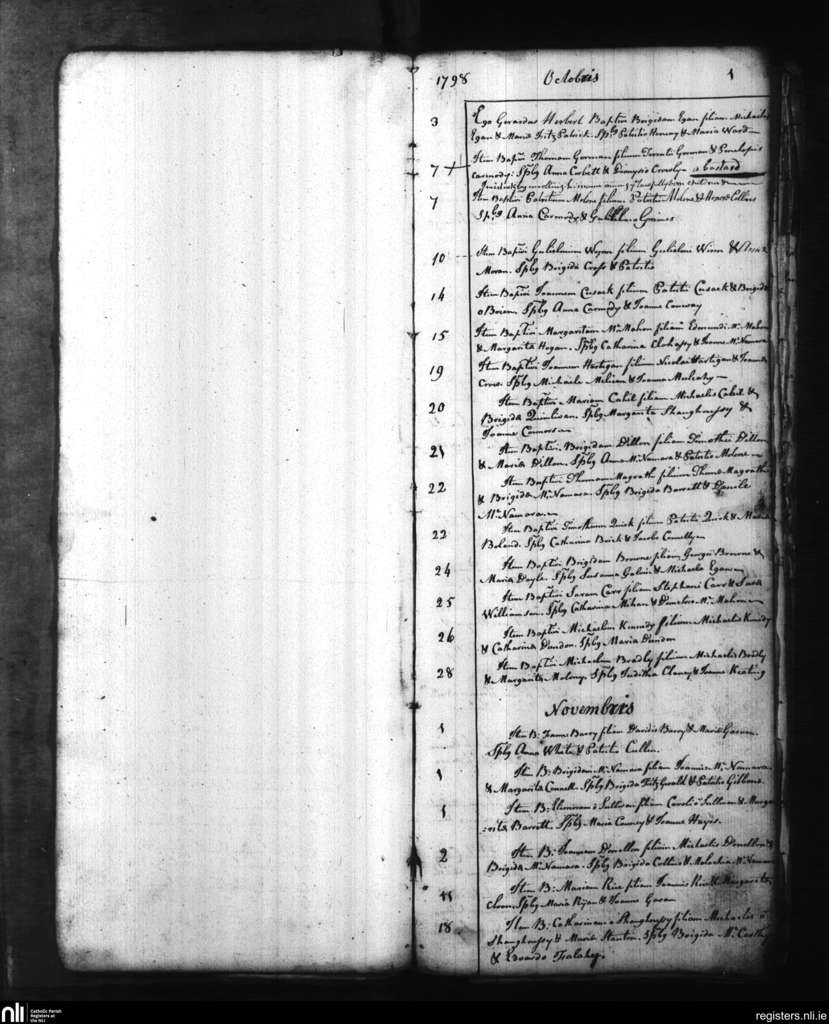 1798 Octobris 1
3 Ego Gerardus Herbert Baptivi Brigidam Egan filiam Michaelis
Egan & Maria Fitz Patrick. Spbg Patritio Hennay & Maria Ward
7 Item Bapvi Thomam Gorman filium Terentii Gorman & Penelopis
Carmody: Spbg Anna Corbett & Dionysio Crowly a bastard
7 Item Baptivi Patritium Molone filium Patritii Molone & Collins
Spbg Anna Carmody & Gulielmo Grimes
10 Item Baptivi Gulielmum filium Gulielmi &
Moran. Spbg Brigida Croft & Patritio
14 Item Baptivi Joannem Cusack filium Patritii Cusack & Brigida
o Brien. Spbg Anna Carmody & Joanne Conway
15 Item Baptivi Margaritam Mc Mahon filiam Edmundi Mc Mahon
& Margarita Hogan. Spbg Catharina Clohassy & Joanne Mc Namara
19 Item Baptivi Joannem Hartigan filium Nicolai Hartigan & Joanna
Crow. Spbg Michaele & Joanna Mulcahy
20 Item Baptivi Mariam Cahil filiam Michaelis Cahil &
Brigida Quinlivan. Spbg Margarita Shaughnessy &
Joanne Connors
21 Item Baptivi Brigidam Dillon filiam Timothei Dillon
& Maria Dillon. Spbg Anna Mc Namara & Patritio Molone
22 Item Baptivi Thomam Magrath filium Thoma Magrath
& Brigida Mc Namara. Spbg Brigida Barrett & Daniele
Mc Namara
22 Item Baptivi Timotheum Quick filium Patritii Quick & Maria
Boland. Spbg Catharina Brick & Jacobo Connellyn
24 Item Baptivi Brigidam Browne filiam Georgii Browne &
Maria Doyle. Spbg Susanna Galvin & Michaele Egan
25 Item Baptivi Saram Carr filiam Stephani Carr & Sara
Williamson. Spbg Catharina Mihan & Demetrio Mc Mahon
26 Item Baptivi Michaelem Kennedy filium Michaelis Kennedy
& Catharina Dundon. Spbg Maria Dundon
28 Item Baptivi Michaelem Bradly filium Michaelis Bradly
& Margarita Molony. Spbg Juditha Clancy & Joanne Keating
Novembris
1 Item B: Joanna Barry filiam Davidis Barry & Maria
Spbg Anna White & Patritio Cullen.
1 Item B: Brigidam Mc Namara filiam Joannis Mc Nammara
& Margarita Connell. Spbg Brigida FitzGerald & Patritio Gibbons.
1 Item B: Elinoram o Sullivan filiam Caroli o Sullivan & Marga
:rita Barrett. Spbg Maria & Joanne Hayes.
2 Item B: Joannem Donellon filium Michaelis Donellon &
Brigida Mc Namara. Spbg Brigida Collins & Malachia Mc Namara
11 Item B: Mariam Rice filiam Joannis Rice & Margarita
Spbg Maria Ryan & Joanne
18 Item B: Catharinam o Shaughnessy filiam Michaelis o
Shaughnessy & Maria Stanton. Spbg Brigida Mc Carthy
& Edoardo
nli
Catholic Parish
Registers at
the NLI
registers.nli.ie